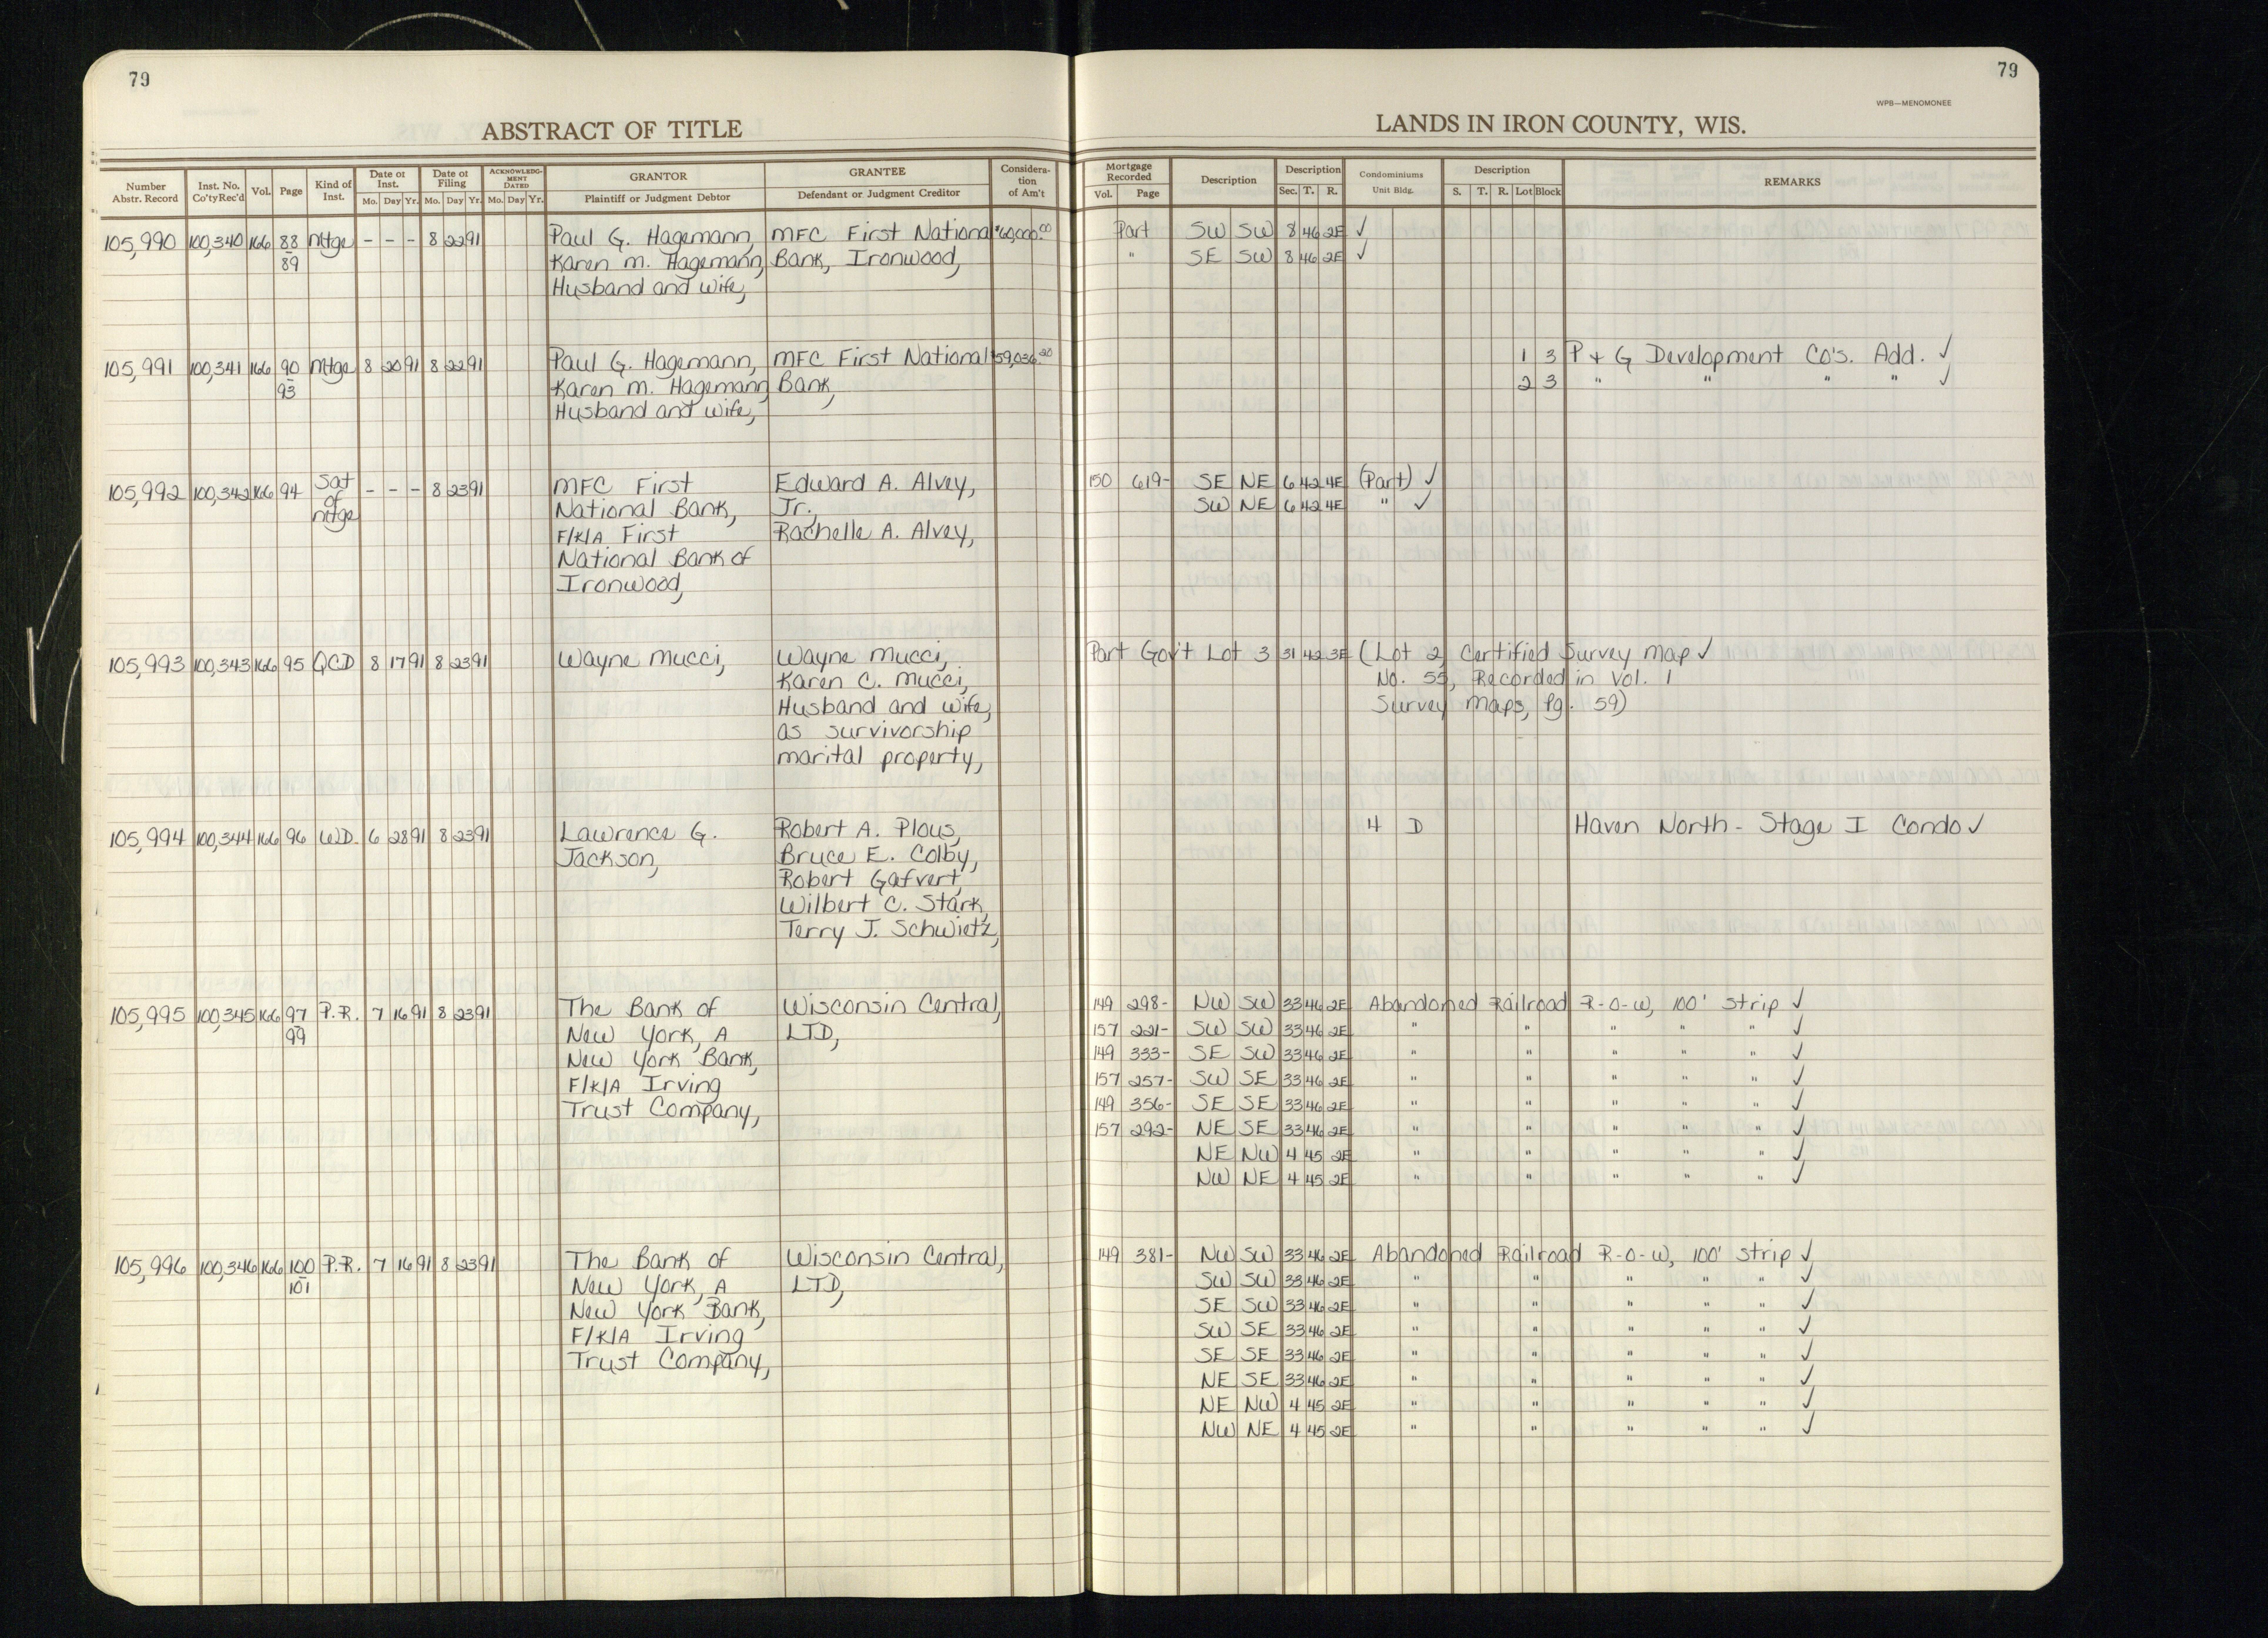 79
ABSTRACT OF TITLE
Number Abstr. Record Inst. No. Co'ty Rec'd Vol. Page Kind of Inst. Date of Inst. Mo. Day Yr. Date of Filing Mo. Day Yr. ACKNOWLEDGMENT DATED Mo. Day Yr. GRANTOR Plaintiff or Judgment Debtor GRANTEE Defendant or Judgment Creditor Consideration of Am't
105,990 100,340 166 88 Mtge - - - 8 22 91 Paul G. Hagemann, MFC First National $60,000.00
89 Karen M. Hagemann, Bank, Ironwood,
Husband and wife,
105,991 100,341 166 90 Mtge 8 20 91 8 22 91 Paul G. Hagemann, MFC First National $59,036.20
93 Karen M. Hagemann Bank,
Husband and wife,
105,992 100,342 166 94 Sat of Mtge - - - 8 23 91 MFC First Edward A. Alvey,
National Bank, Jr.,
F/K/A First Rachelle A. Alvey,
National Bank of
Ironwood,
105,993 100,343 166 95 QCD 8 17 91 8 23 91 Wayne Mucci, Wayne Mucci,
Karen C. Mucci,
Husband and wife,
as survivorship
marital property,
105,994 100,344 166 96 WD. 6 28 91 8 23 91 Lawrence G. Robert A. Plous,
Jackson, Bruce E. Colby,
Robert Gafvert,
Wilbert C. Stark,
Terry J. Schwietz,
105,995 100,345 166 97 P.R. 7 16 91 8 23 91 The Bank of Wisconsin Central,
99 New York, A LTD,
New York Bank,
F/K/A Irving
Trust Company,
105,996 100,346 166 100 P.R. 7 16 91 8 23 91 The Bank of Wisconsin Central,
101 New York, A LTD,
New York Bank,
F/K/A Irving
Trust Company,
79
WPB—MENOMONEE
LANDS IN IRON COUNTY, WIS.
Mortgage Recorded Vol. Page Description Description Sec. T. R. Condominiums Unit Bldg. Description S. T. R. Lot Block REMARKS
Part SW SW 8 46 2E ✓
" SE SW 8 46 2E ✓
1 3 P + G Development Co's. Add. ✓
2 3 " " " " ✓
150 619- SE NE 6 42 4E (Part) ✓
SW NE 6 42 4E " ✓
Part Gov't Lot 3 31 42 3E (Lot 2, Certified Survey Map ✓
No. 55, Recorded in Vol. 1
Survey Maps, Pg. 59)
4 D Haven North - Stage I Condo ✓
149 298- NW SW 33 46 2E Abandoned Railroad R-O-W, 100' strip ✓
157 221- SW SW 33 46 2E " " " " " ✓
149 333- SE SW 33 46 2E " " " " " ✓
157 257- SW SE 33 46 2E " " " " " ✓
149 356- SE SE 33 46 2E " " " " " ✓
157 292- NE SE 33 46 2E " " " " " ✓
NE NW 4 45 2E " " " " " ✓
NW NE 4 45 2E " " " " " ✓
149 381- NW SW 33 46 2E Abandoned Railroad R-O-W, 100' strip ✓
SW SW 33 46 2E " " " " " ✓
SE SW 33 46 2E " " " " " ✓
SW SE 33 46 2E " " " " " ✓
SE SE 33 46 2E " " " " " ✓
NE SE 33 46 2E " " " " " ✓
NE NW 4 45 2E " " " " " ✓
NW NE 4 45 2E " " " " " ✓